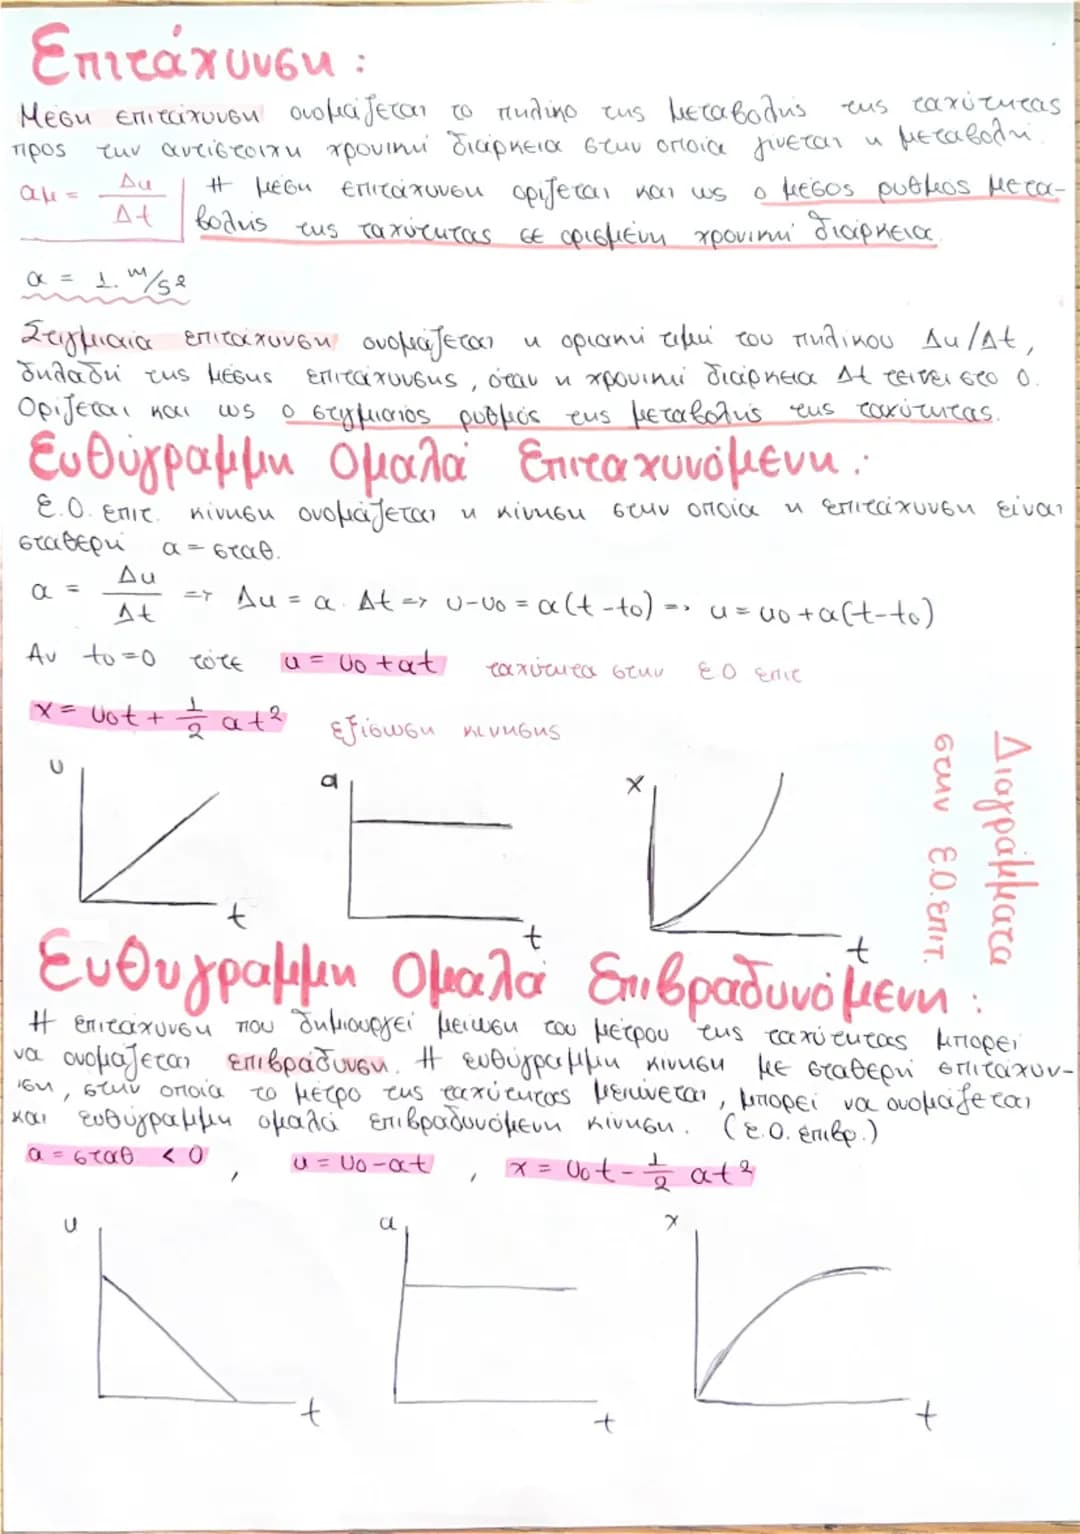 Επιτάχυνση :
Μέση επιτάχυνση ονομάζεται το πηλίκο της μεταβολής της ταχύτητας
προς την αντίστοιχη χρονική διάρκεια στην οποία γίνεται η μεταβολή.
αμ = Δυ/Δt Η μέση επιτάχυνση ορίζεται και ως ο μέσος ρυθμός μετα-
βολής της ταχύτητας σε ορισμένη χρονική διάρκεια.
α = 1. m/s2
Στιγμιαία επιτάχυνση ονομάζεται η οριακή τιμή του πηλίκου Δυ/Δt,
δηλαδή της μέσης επιτάχυνσης, όταν η χρονική διάρκεια Δt τείνει στο 0.
Ορίζεται και ως ο στιγμιαίος ρυθμός της μεταβολής της ταχύτητας.
Ευθύγραμμη Ομαλά Επιταχυνόμενη :
Ε.Ο. επιτ. κίνηση ονομάζεται η κίνηση στην οποία η επιτάχυνση είναι
σταθερή α = σταθ.
α = Δυ/Δt => Δυ = α. Δt => υ-υ0 = α(t-t0) => υ = υ0 + α(t-t0)
Αν t0=0 τότε υ = υ0 + αt ταχύτητα στην ΕΟ επιτ
x = υ0t + 1/2 αt2 εξίσωση κίνησης
Διαγράμματα
στην Ε.Ο.επιτ.
υ α x
t t t
Ευθυγραμμη Ομαλά Επιβραδυνόμενη :
Η επιτάχυνση που δημιουργεί μείωση του μέτρου της ταχύτητας μπορεί
να ονομάζεται επιβράδυνση. Η ευθύγραμμη κίνηση με σταθερή επιτάχυν-
ση, στην οποία το μέτρο της ταχύτητας μειώνεται, μπορεί να ονομάζεται
και ευθύγραμμη ομαλά επιβραδυνόμενη κίνηση. (Ε.Ο. επιβρ.)
α = σταθ < 0 , υ = υ0 - αt , x = υ0t - 1/2 αt2
υ α x
t t t